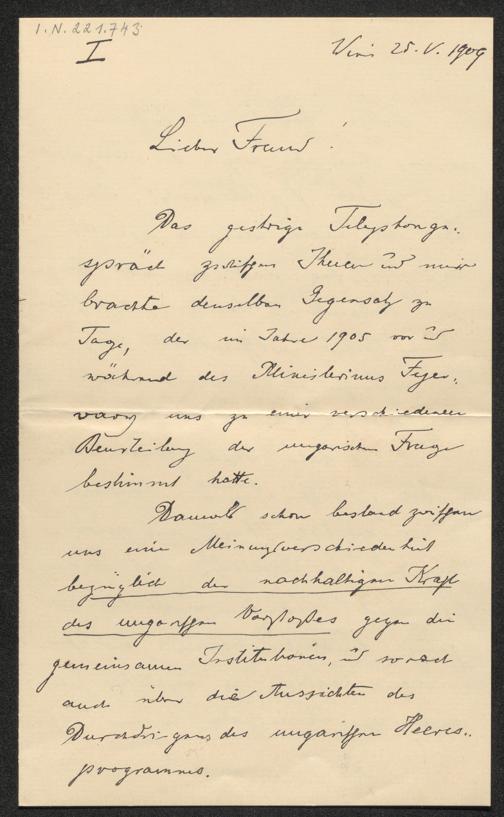 I.N. 221.743
I
Wien 25. V. 1909
Lieber Freund!
Das gestrige Telephonge-
spräch zwischen Ihnen und mir
brachte denselben Gegensatz zu
Tage, der im Jahre 1905 vor und
während des Ministeriums Fejer-
vary uns zu einer verschiedenen
Beurteilung der ungarischen Frage
bestimmt hatte.
Damals schon bestand zwischen
uns eine Meinungsverschiedenheit
bezüglich der nachhaltigen Kraft
des ungarischen Vorstoßes gegen die
gemeinsamen Institutionen, und
auch über die Aussichten des
Durchdringens des ungarischen Heeres-
programmes.